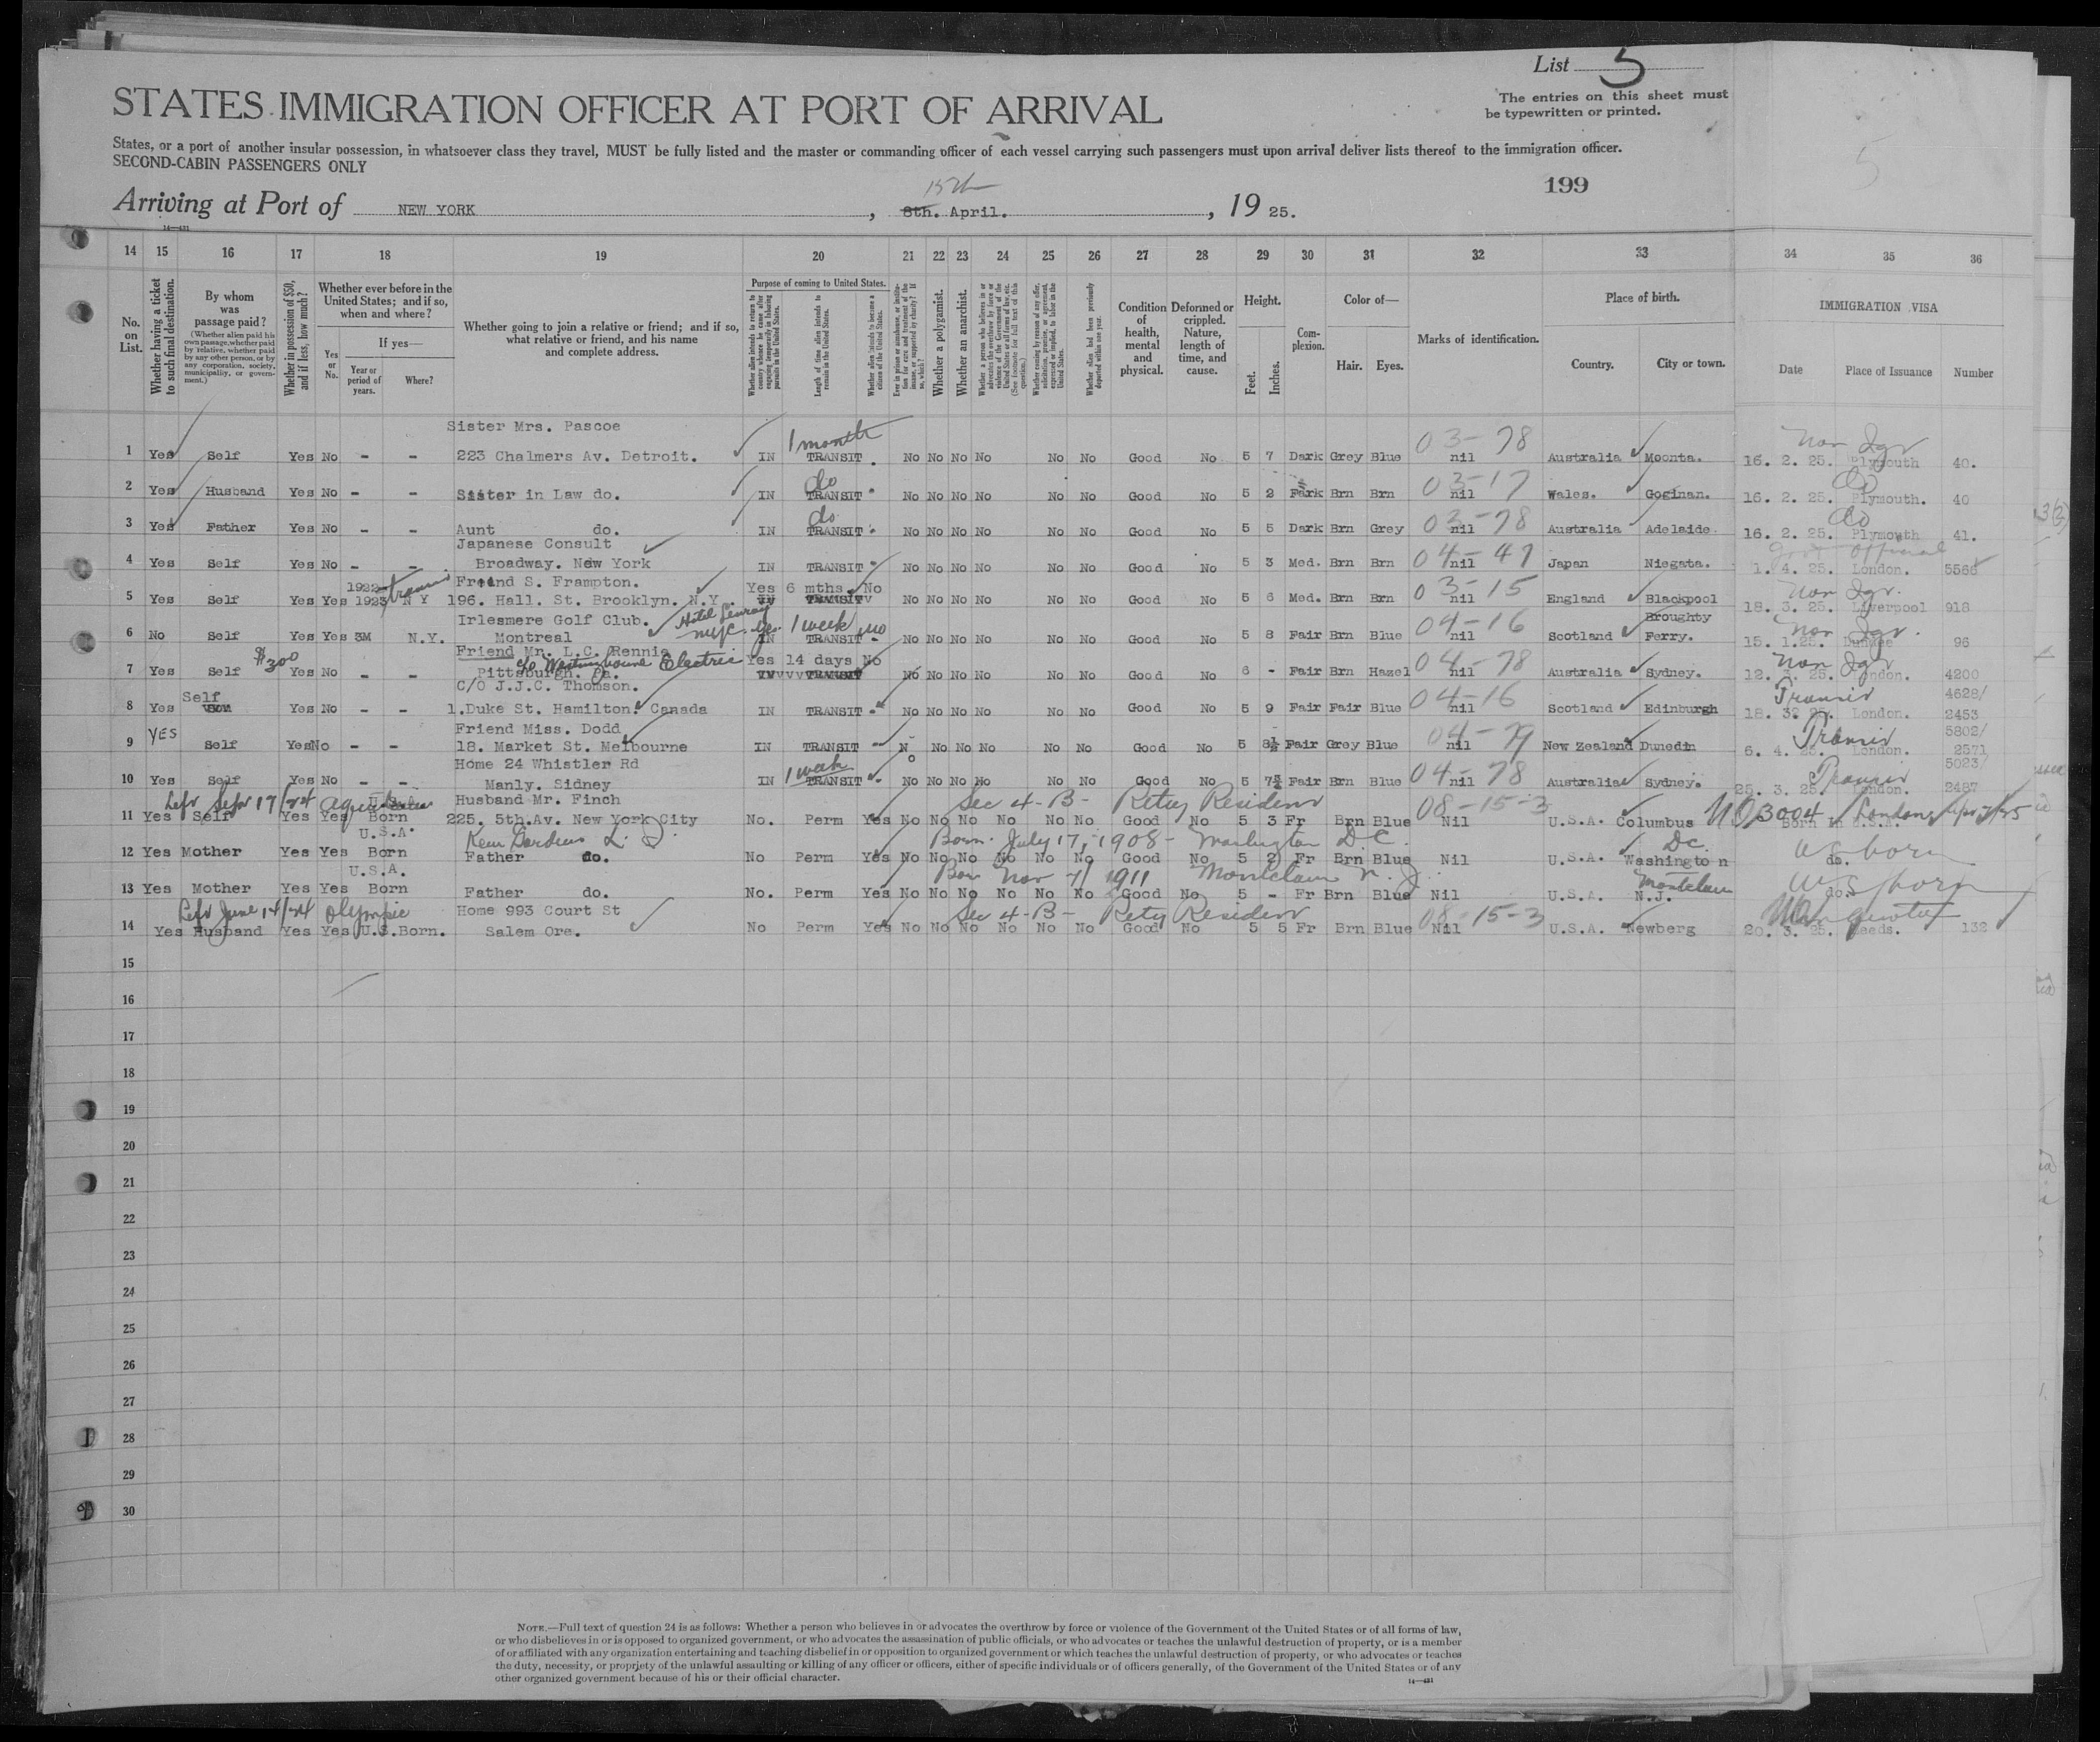 List 5
The entries on this sheet must
be typewritten or printed.
STATES IMMIGRATION OFFICER AT PORT OF ARRIVAL
States, or a port of another insular possession, in whatsoever class they travel, MUST be fully listed and the master or commanding officer of each vessel carrying such passengers must upon arrival deliver lists thereof to the immigration officer.
SECOND-CABIN PASSENGERS ONLY
199
15th
Arriving at Port of NEW YORK , 8th. April. , 19 25.
14—431
14 15 16 17 18 19 20 21 22 23 24 25 26 27 28 29 30 31 32 33 34 35 36
No. on List.
Whether having a ticket to such final destination.
By whom was passage paid?
(Whether alien paid his own passage, whether paid by relative, whether paid by any other person, or by any corporation, society, municipality, or government.)
Whether in possession of $50, and if less, how much?
Whether ever before in the United States; and if so, when and where?
Yes or No.
If yes—
Year or period of years.
Where?
Whether going to join a relative or friend; and if so, what relative or friend, and his name and complete address.
Purpose of coming to United States.
Whether alien intends to return to country whence he came after engaging temporarily in laboring pursuits in the United States.
Length of time alien intends to remain in the United States.
Whether alien intends to become a citizen of the United States.
Ever in prison or almshouse, or institution for care and treatment of the insane, or supported by charity? If so, which?
Whether a polygamist.
Whether an anarchist.
Whether a person who believes in or advocates the overthrow by force or violence of the Government of the United States or all forms of law, etc. (See footnote for full text of this question.)
Whether coming by reason of any offer, solicitation, promise, or agreement, expressed or implied, to labor in the United States.
Whether alien had been previously deported within one year.
Condition of health, mental and physical.
Deformed or crippled. Nature, length of time, and cause.
Height.
Feet.
Inches.
Complexion.
Color of—
Hair. Eyes.
Marks of identification.
Place of birth.
Country. City or town.
IMMIGRATION VISA
Date Place of Issuance Number
Sister Mrs. Pascoe 1 month 03-78 Non Igr
1 Yes Self Yes No - - 223 Chalmers Av. Detroit. IN TRANSIT. No No No No No No Good No 5 7 Dark Grey Blue nil Australia Moonta. 16. 2. 25. Plymouth 40.
do 03-17 do
2 Yes Husband Yes No - - Sister in Law do. IN TRANSIT No No No No No No Good No 5 2 Brn Brn nil Wales. Goginan. 16. 2. 25. Plymouth. 40
do 03-78 do
3 Yes Father Yes No - - Aunt do. IN TRANSIT No No No No No No Good No 5 5 Dark Brn Grey nil Australia Adelaide. 16. 2. 25. Plymouth 41.
Japanese Consult 04-47 Govt Official
4 Yes Self Yes No - - Broadway. New York IN TRANSIT No No No No No No Good No 5 3 Med. Brn Brn nil Japan Niegata. 1. 4. 25. London. 5566
1922 transit Friend S. Frampton. Yes 6 mths. No 03-15 Non Igr.
5 Yes Self Yes Yes 1923 N Y 196. Hall. St. Brooklyn. N.Y. IN TRANSIT No No No No No No Good No 5 6 Med. Brn Brn nil England Blackpool 18. 3. 25. Liverpool 918
Irlesmere Golf Club. Hotel NYC. 1 week no 04-16 Broughty Non Igr.
6 No Self Yes Yes 3M N.Y. Montreal IN TRANSIT No No No No No No Good No 5 8 Fair Brn Blue nil Scotland Ferry. 15. 1.25. Dundee 96
$300 Friend Mr. L.C. Rennie c/o Westinghouse Electric Yes 14 days No 04-78 Non Igr
7 Yes Self Yes No - - Pittsburgh. Pa. TRANSIT No No No No No No Good No 6 - Fair Brn Hazel nil Australia Sydney. 12. 3. 25. London. 4200
Self C/O J.J.C. Thomson. 04-16 Transit 4628/
8 Yes Yes No - - 1.Duke St. Hamilton. Canada IN TRANSIT No No No No No No Good No 5 9 Fair Fair Blue nil Scotland Edinburgh 18. 3. 25. London. 2453
YES Friend Miss. Dodd 04-79 Transit 5802/
9 Self Yes No - - 18. Market St. Melbourne IN TRANSIT No No No No No No Good No 5 8½ Fair Grey Blue nil New Zealand Dunedin 6. 4. 25. London. 2571
Home 24 Whistler Rd 1 week 04-78 Transit 5023/
10 Yes Self Yes No - - Manly. Sidney IN TRANSIT No No No No No No Good No 5 7 Fair Brn Blue nil Australia Sydney. 25. 3. 25. London. 2487
Left Sept 17/24 Aquitania U.S.A. Husband Mr. Finch Sec 4-B- Retg Resident 08-15-3
11 Yes Self Yes Yes Born 225. 5th.Av. New York City No. Perm Yes No No No No No No Good No 5 3 Fr Brn Blue Nil U.S.A. Columbus No 3004 London Apr 7/25 Born in U.S.A.
U.S.A. Kew Gardens L. I. Born July 17, 1908- Washington D.C. DC. US born
12 Yes Mother Yes Yes Born Father do. No Perm Yes No No No No No No Good No 5 2 Fr Brn Blue Nil U.S.A. Washington do.
U.S.A. Born Nov 7/ 1911 Montclair N. J. Montclair US born
13 Yes Mother Yes Yes Born Father do. No. Perm Yes No No No No No No Good No 5 - Fr Brn Blue Nil U.S.A. N.J. do.
Left June 14/24 Olympic Home 993 Court St Sec 4-B- Retg Resident 08-15-3
14 Yes Husband Yes Yes U.S.Born. Salem Ore. No Perm Yes No No No No No No Good No 5 5 Fr Brn Blue Nil U.S.A. Newberg 20. 3. 25. Leeds. 132
15
16
17
18
19
20
21
22
23
24
25
26
27
28
29
30
NOTE.—Full text of question 24 is as follows: Whether a person who believes in or advocates the overthrow by force or violence of the Government of the United States or of all forms of law,
or who disbelieves in or is opposed to organized government, or who advocates the assassination of public officials, or who advocates or teaches the unlawful destruction of property, or is a member
of or affiliated with any organization entertaining and teaching disbelief in or opposition to organized government or which teaches the unlawful destruction of property, or who advocates or teaches
the duty, necessity, or propriety of the unlawful assaulting or killing of any officer or officers, either of specific individuals or of officers generally, of the Government of the United States or of any
other organized government because of his or their official character.
14—431